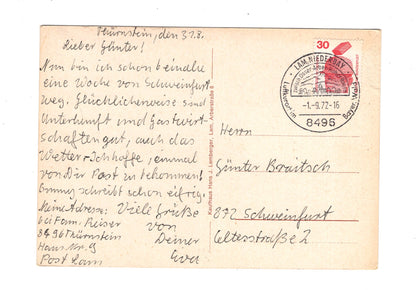 Thürnstein, den 31.8.
Lieber Günter!
Nun bin ich schon beinahe
eine Woche von Schweinfurt
weg. Glücklicherweise sind
Unterkunft und Gastwirt-
schaften gut, auch das
Wetter. Ich hoffe, einmal
von Dir Post zu bekommen!
schreibt schon eifrig.
Meine Adresse:
bei Fam. Reiser
8496 Thürnstein
Haus Nr. 9
Post Lam
Viele Grüße
von
Deiner
Eva
Kaufhaus Hans J. Lemberger, Lam, Arberstraße
30
LAM, NIEDERBAY
Luftkurort im
Bayer. Wald
-1.-9.72-16
8496
Herrn
Günter Braitsch
872 Schweinfurt
Celtesstraße 2